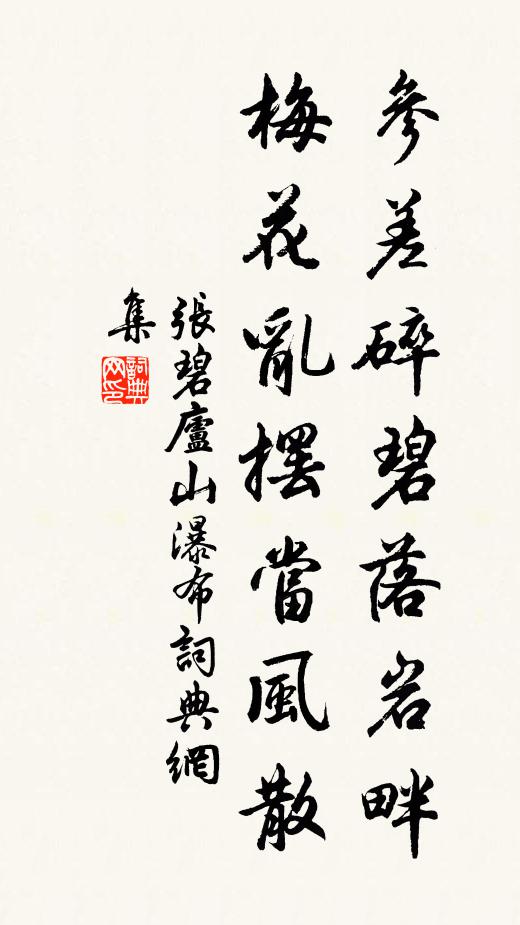 參差碎碧落岩畔
梅花亂擺當風散
張碧廬山瀑布詞典網
集
詞典網印